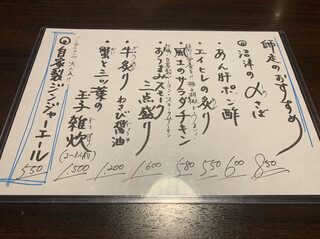 師走のおすすめ
沼津の〆さば 850
・あん肝ポン酢 600
・エイヒレの炙り 550
・風土のサラダチキン 580
・おつまみスモーク三点盛り 1.600
・牛炙り わさび醤油 1.200
・蟹と三つ葉の玉子雑炊 (2〜3人前) 1.500
自家製ジンジャーエール 550